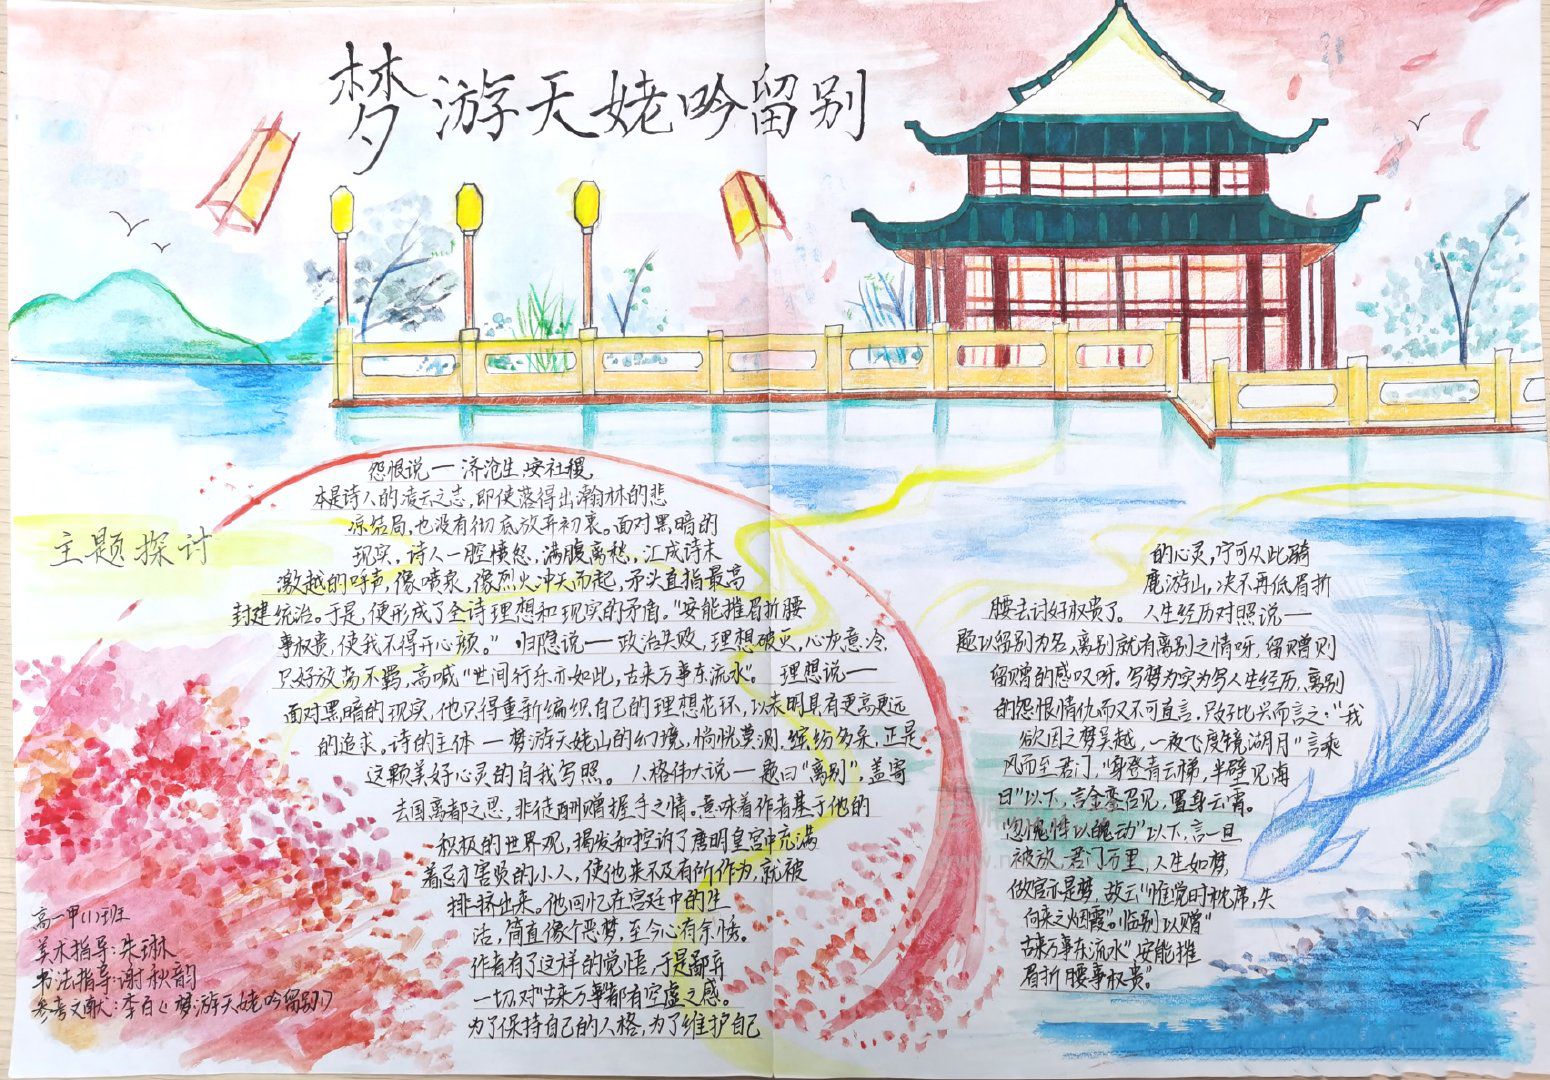 梦游天姥吟留别
主题探讨
怨恨说一济沧生,安社稷,
本是诗人的凌云之志,即使落得出瀚林的悲
凉结局,也没有彻底放弃初衷。面对黑暗的
现实,诗人一腔愤怒,满腹离愁,汇成诗末
激越的呼声,像喷泉,像烈火冲天而起,矛头直指最高
封建统治。于是,便形成了全诗理想和现实的矛盾。"安能摧眉折腰
事权贵,使我不得开心颜。" 归隐说一政治失败,理想破灭,心灰意冷,
只好放荡不羁,高喊"世间行乐亦如此,古来万事东流水"。 理想说一
面对黑暗的现实,他只得重新编织自己的理想花环,以表明具有更高更远
的追求。诗的主体一梦游天姥山的幻境,惝恍莫测,缤纷多条,正是
这颗美好心灵的自我写照。 人格伟大说一题曰"离别",盖寄
去国离都之思,非徒酬赠握手之情。意味着作者基于他的
积极的世界观,揭发和控诉了唐明皇宫中充满
着忌才害贤的小人,使他来不及有所作为,就被
排挤出来。他回忆在宫廷中的生
活,简直像个恶梦,至今心有余悸。
作者有了这样的觉悟,于是鄙弃
一切,对"古来万事"都有空虚之感。
为了保持自己的人格,为了维护自己
的心灵,宁可从此骑
鹿游山,决不再低眉折
腰去讨好权贵了。 人生经历对照说一
题以留别为名,离别就有离别之情呀,留赠则
留赠的感叹呀。写梦为实为写人生经历,离别
的怨恨情仇而又不可直言,只好比兴而言之:"我
欲因之梦吴越,一夜飞度镜湖月"言乘
风而至君门,"身登青云梯,半壁见海
日"以下,言金銮召见,置身云霄。
"忽魂悸以魄动"以下,言一旦
被放,君门万里,人生如梦,
做官亦是梦,故云"惟觉时枕席,失
向来之烟霞"。临别以赠"
古来万事东流水"安能摧
眉折腰事权贵。"
高一甲(1)班
美术指导:朱琳
书法指导:谢秋韵
参考文献:李白《梦游天姥吟留别》